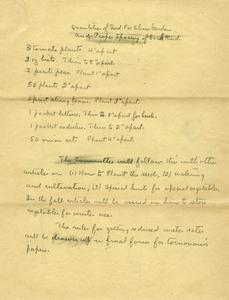 Quantities of Seed For Above Garden
and Proper Spacing of Each Kind.
8 tomato plants. 4' apart
2 oz beets. Thin to 3" apart.
2 pints peas. Plant 1" apart
50 plants 2' apart
1 pint string beans. Plant 3" apart.
1 packet lettuce. Thin to 8" apart for heads.
1 packet radishes. Thin to 2" apart.
50 onion sets. Plant 4" apart
The Committee will follow this with other
articles on (1) How to Plant the seed, (2) Watering
and cultivation, (3) Special hints for special vegetables.
In the fall articles will be issued on how to store
vegetables for winter use.
The rules for getting reduced water rates
will be drawn up in final form for tomorrow's
papers.